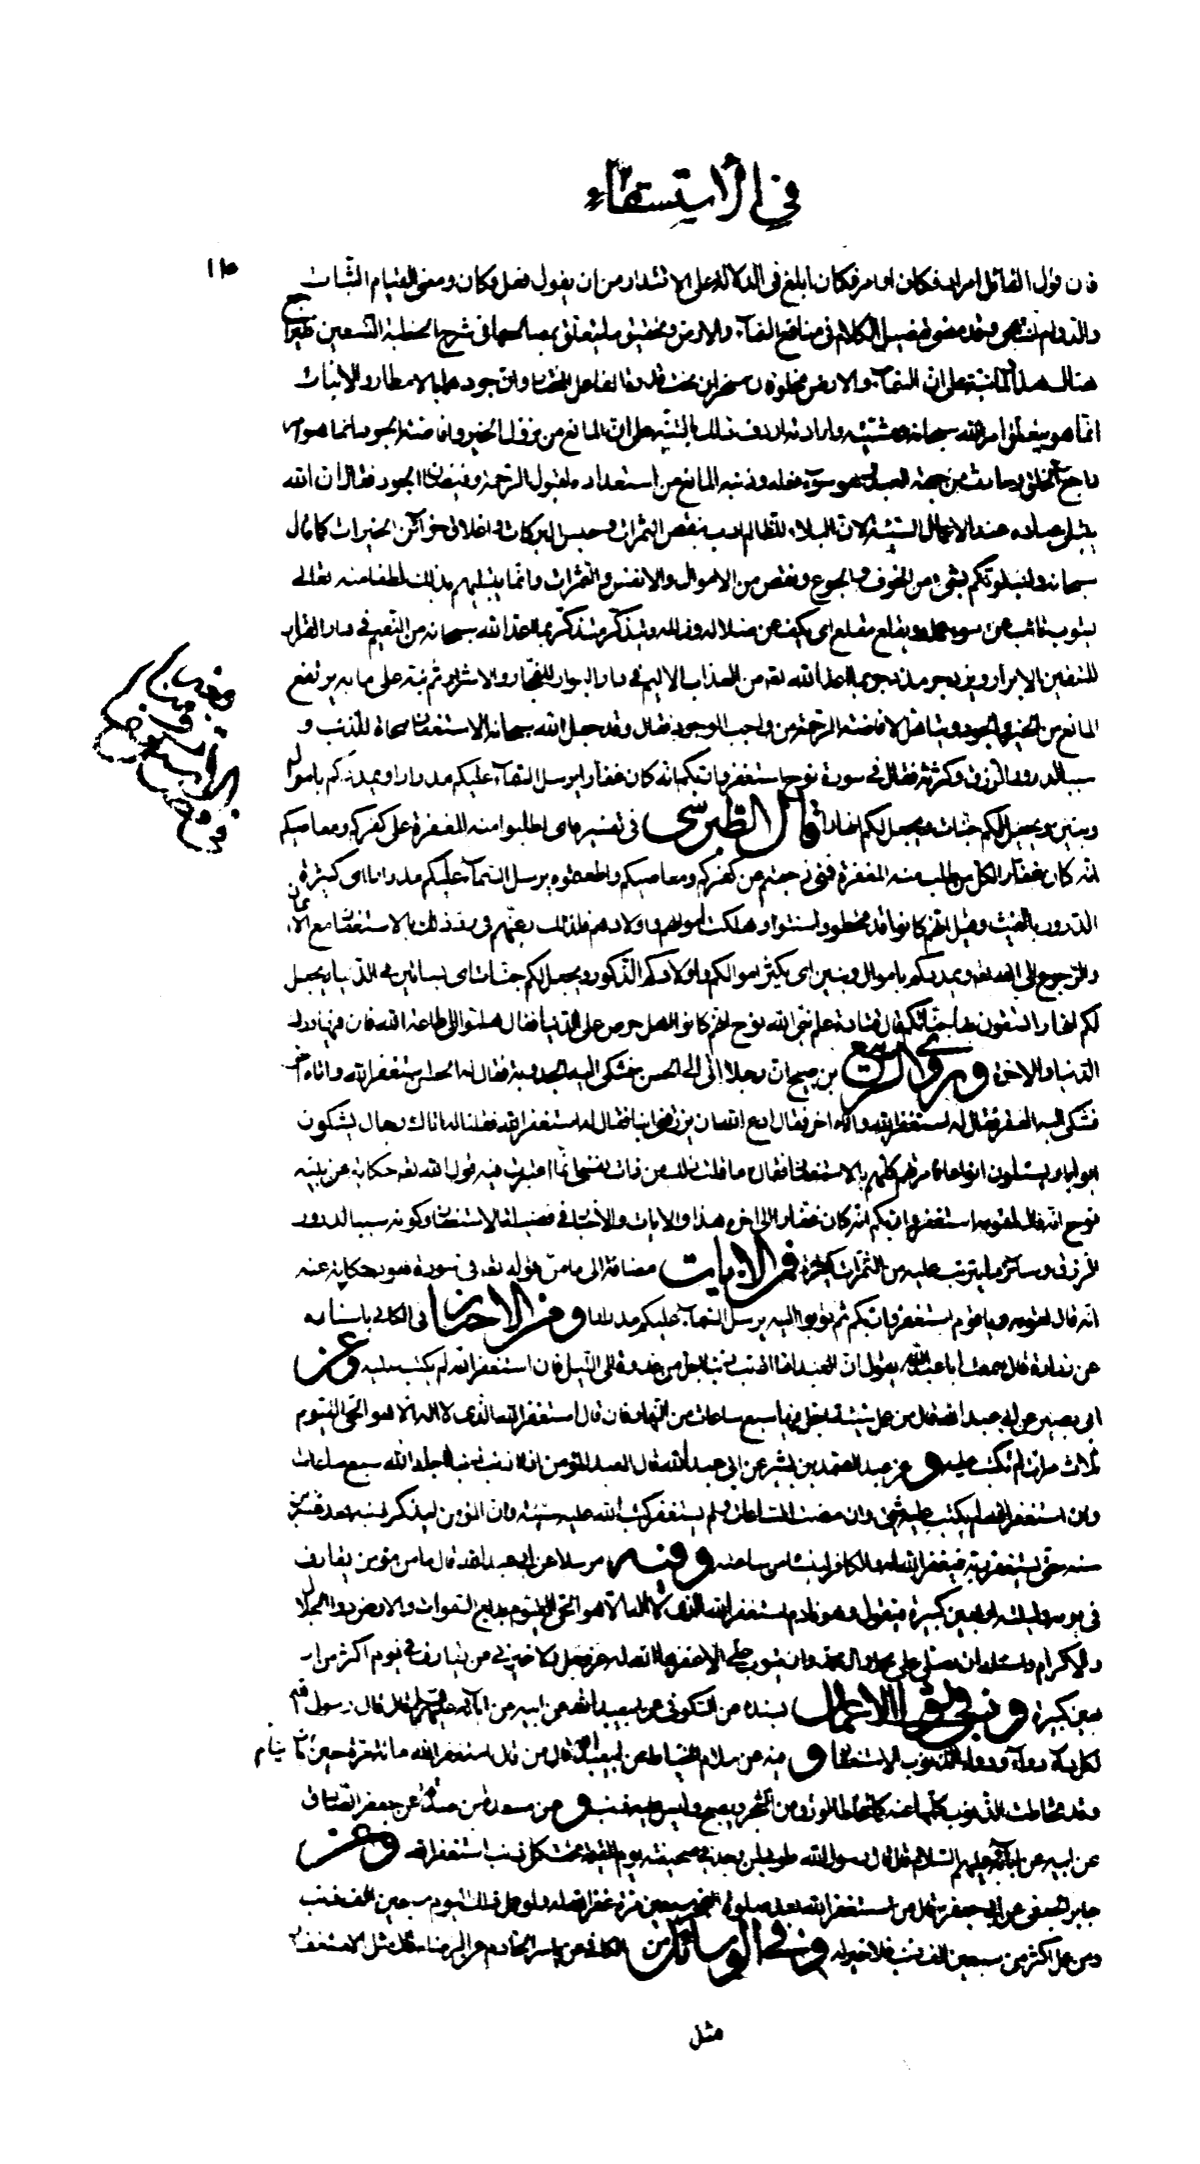 في الاستسقاء
١١٥
فان قول القائل امرته فكان او امر فكان ابلغ في الدلالة على الاقتدار من ان يقول فعل وكان ومعنى القيام الثبات
والدوام انتهى وقد مضى تفصيل الكلام في منافع السماء والارض وتحقيق ما يتعلق بمصالحهما في شرح الخطبة التسعين فليراجع
هناك هذا ولما نبه على ان السماء والارض مخلوقتان مسخرتان تحت قدرة الفاعل المختار وان جودهما بالامطار والانبات
انما هو بتعلق امر الله سبحانه ومشيته وارادته اردف ذلك بالتنبيه على ان المانع من نزول الخير وافاضة الجود انما هو امر
راجع الى الخلق وحادث من جهة العبد وهو سوء فعله وذنبه المانع من استعداده لقبول الرحمة وفيضان الجود فقال ان الله
يبتلى عباده عند الاعمال السيئة لان البلاء للظالم ادب بنقص الثمرات وحبس البركات واغلاق خزائن الخيرات كما قال
سبحانه ولنبلونكم بشيء من الخوف والجوع ونقص من الاموال والانفس والثمرات وانما يبتليهم بذلك لطفا منه تعالى
ليتوب تائب من سوء عمله ويقلع مقلع اى يكف عن ضلاله وزلله ويتذكر متذكر بما اعد الله سبحانه من النعيم في دار القرار
للمتقين الابرار ويزدجر مزدجر بما اعد الله تعه من العذاب الاليم في دار البوار للفجار والاشرار ثم نبه على ما به يرتفع
المانع من الخير والجود ويتاهل لافاضة الرحمة من واجب الوجود فقال وقد جعل الله سبحانه الاستغفار ممحاة للذنب و
سببا لدرور الرزق وكثرته فقال في سورة نوح استغفروا ربكم انه كان غفارا يرسل السماء عليكم مدرارا ويمددكم باموال
وبنين ويجعل لكم جنات ويجعل لكم انهارا قال الطبرسى في تفسيره اى اطلبوا منه المغفرة على كفركم ومعاصيكم
انه كان غفارا لكل من طلب منه المغفرة فمتى رجعتم عن كفركم ومعاصيكم واطعتموه يرسل السماء عليكم مدرارا اى كثيرة
الدرور بالغيث وقيل انهم كانوا قد قحطوا واسنتوا وهلكت اموالهم واولادهم فلذلك رغبهم في رد ذلك بالاستغفار مع الايمان
والرجوع الى الله تعه ويمددكم باموال وبنين اى يكثر اموالكم واولادكم الذكور ويجعل لكم جنات اى بساتين في الدنيا ويجعل
لكم انهارا تسقون بها جناتكم قال قتادة علم نبى الله نوح انهم كانوا اهل حرص على الدنيا فقال هلموا الى طاعة الله فان فيها درك
الدنيا والاخرة وروى الربيع بن صبيح ان رجلا اتى الحسن فشكى اليه الجدوبة فقال له الحسن استغفر الله واتاه اخر
فشكى اليه الفقر فقال له استغفر الله واتاه اخر فقال ادع الله ان يرزقنى ابنا فقال له استغفر الله فقلنا له اتاك رجال يشكون
ابوابا ويسئلون انواعا فامرتهم كلهم بالاستغفار فقال ما قلت ذلك من ذات نفسى انما اعتبرت فيه قول الله تعه حكاية عن نبيه
نوح انه قال لقومه استغفروا ربكم انه كان غفارا الى اخره هذا والايات والاخبار في فضيلة الاستغفار وكونه سببا لدرور
الرزق وسائر ما يترتب عليه من الثمرات كثيرة فمن الايات مضافة الى ما مر قوله تعه في سورة هود حكاية عنه
انه قال لقومه ويا قوم استغفروا ربكم ثم توبوا اليه يرسل السماء عليكم مدرارا ومن الاخبار في الكافي باسناده
عن زرارة قال سمعت ابا عبد الله يقول ان العبد اذا اذنب ذنبا اجل من غدوة الى الليل فان استغفر الله لم يكتب عليه وعن
ابى بصير عن ابى عبد الله قال من عمل سيئة اجل فيها سبع ساعات من النهار فان قال استغفر الله الذى لا اله الا هو الحى القيوم
ثلاث مرات لم تكتب عليه وعن عبد الصمد بن بشير عن ابى عبد الله قال العبد المؤمن اذا اذنب ذنبا اجله الله سبع ساعات
وان استغفر الله لم يكتب عليه شيء وان مضت الساعات ولم يستغفر كتب الله عليه سيئة وان المؤمن ليذكر ذنبه بعد عشرين
سنه حتى يستغفر ربه فيغفر الله له وان الكافر لينساه من ساعته وفيه مرسلا عن ابى عبد الله قال ما من مؤمن يقارف
في يومه وليلته اربعين كبيرة فيقول وهو نادم استغفر الله الذى لا اله الا هو الحى القيوم بديع السموات والارض ذو الجلال
والاكرام واسئله ان يصلى على محمد وال محمد وان يتوب على الا غفرها الله له عز وجل ولا خير في من يقارف في يوم اكثر من ار
بعين كبيرة وفي ثواب الاعمال بسنده عن السكونى عن ابى عبد الله عن ابيه عن ابائه عليهم السلم قال قال رسول الله
لكل داء دواء ودواء الذنوب الاستغفار وفيه عن سلام الخياط عن ابى عبد الله قال من قال استغفر الله مائة مرة حين ينام بات
وقد تحاطت الذنوب كلها عنه كما يتحاط الورق من الشجر ويصبح وليس عليه ذنب وعن مسعدة بن صدقة عن جعفر الصادق
عن ابيه عن ابائه عليهم السلام قال قال رسول الله طوبى لمن يجد في صحيفته يوم القيمة تحت كل ذنب استغفر الله وعن
جابر الجعفى عن ابى جعفر قال من استغفر الله بعد صلوة الفجر سبعين مرة غفر الله له ولو عمل ذلك اليوم سبعين الف ذنب
ومن عمل اكثر من سبعين الف ذنب فلا خير له وفي الوسائل من الكافى عن ياسر الخادم عن الرضا قال مثل الاستغفار
مثل